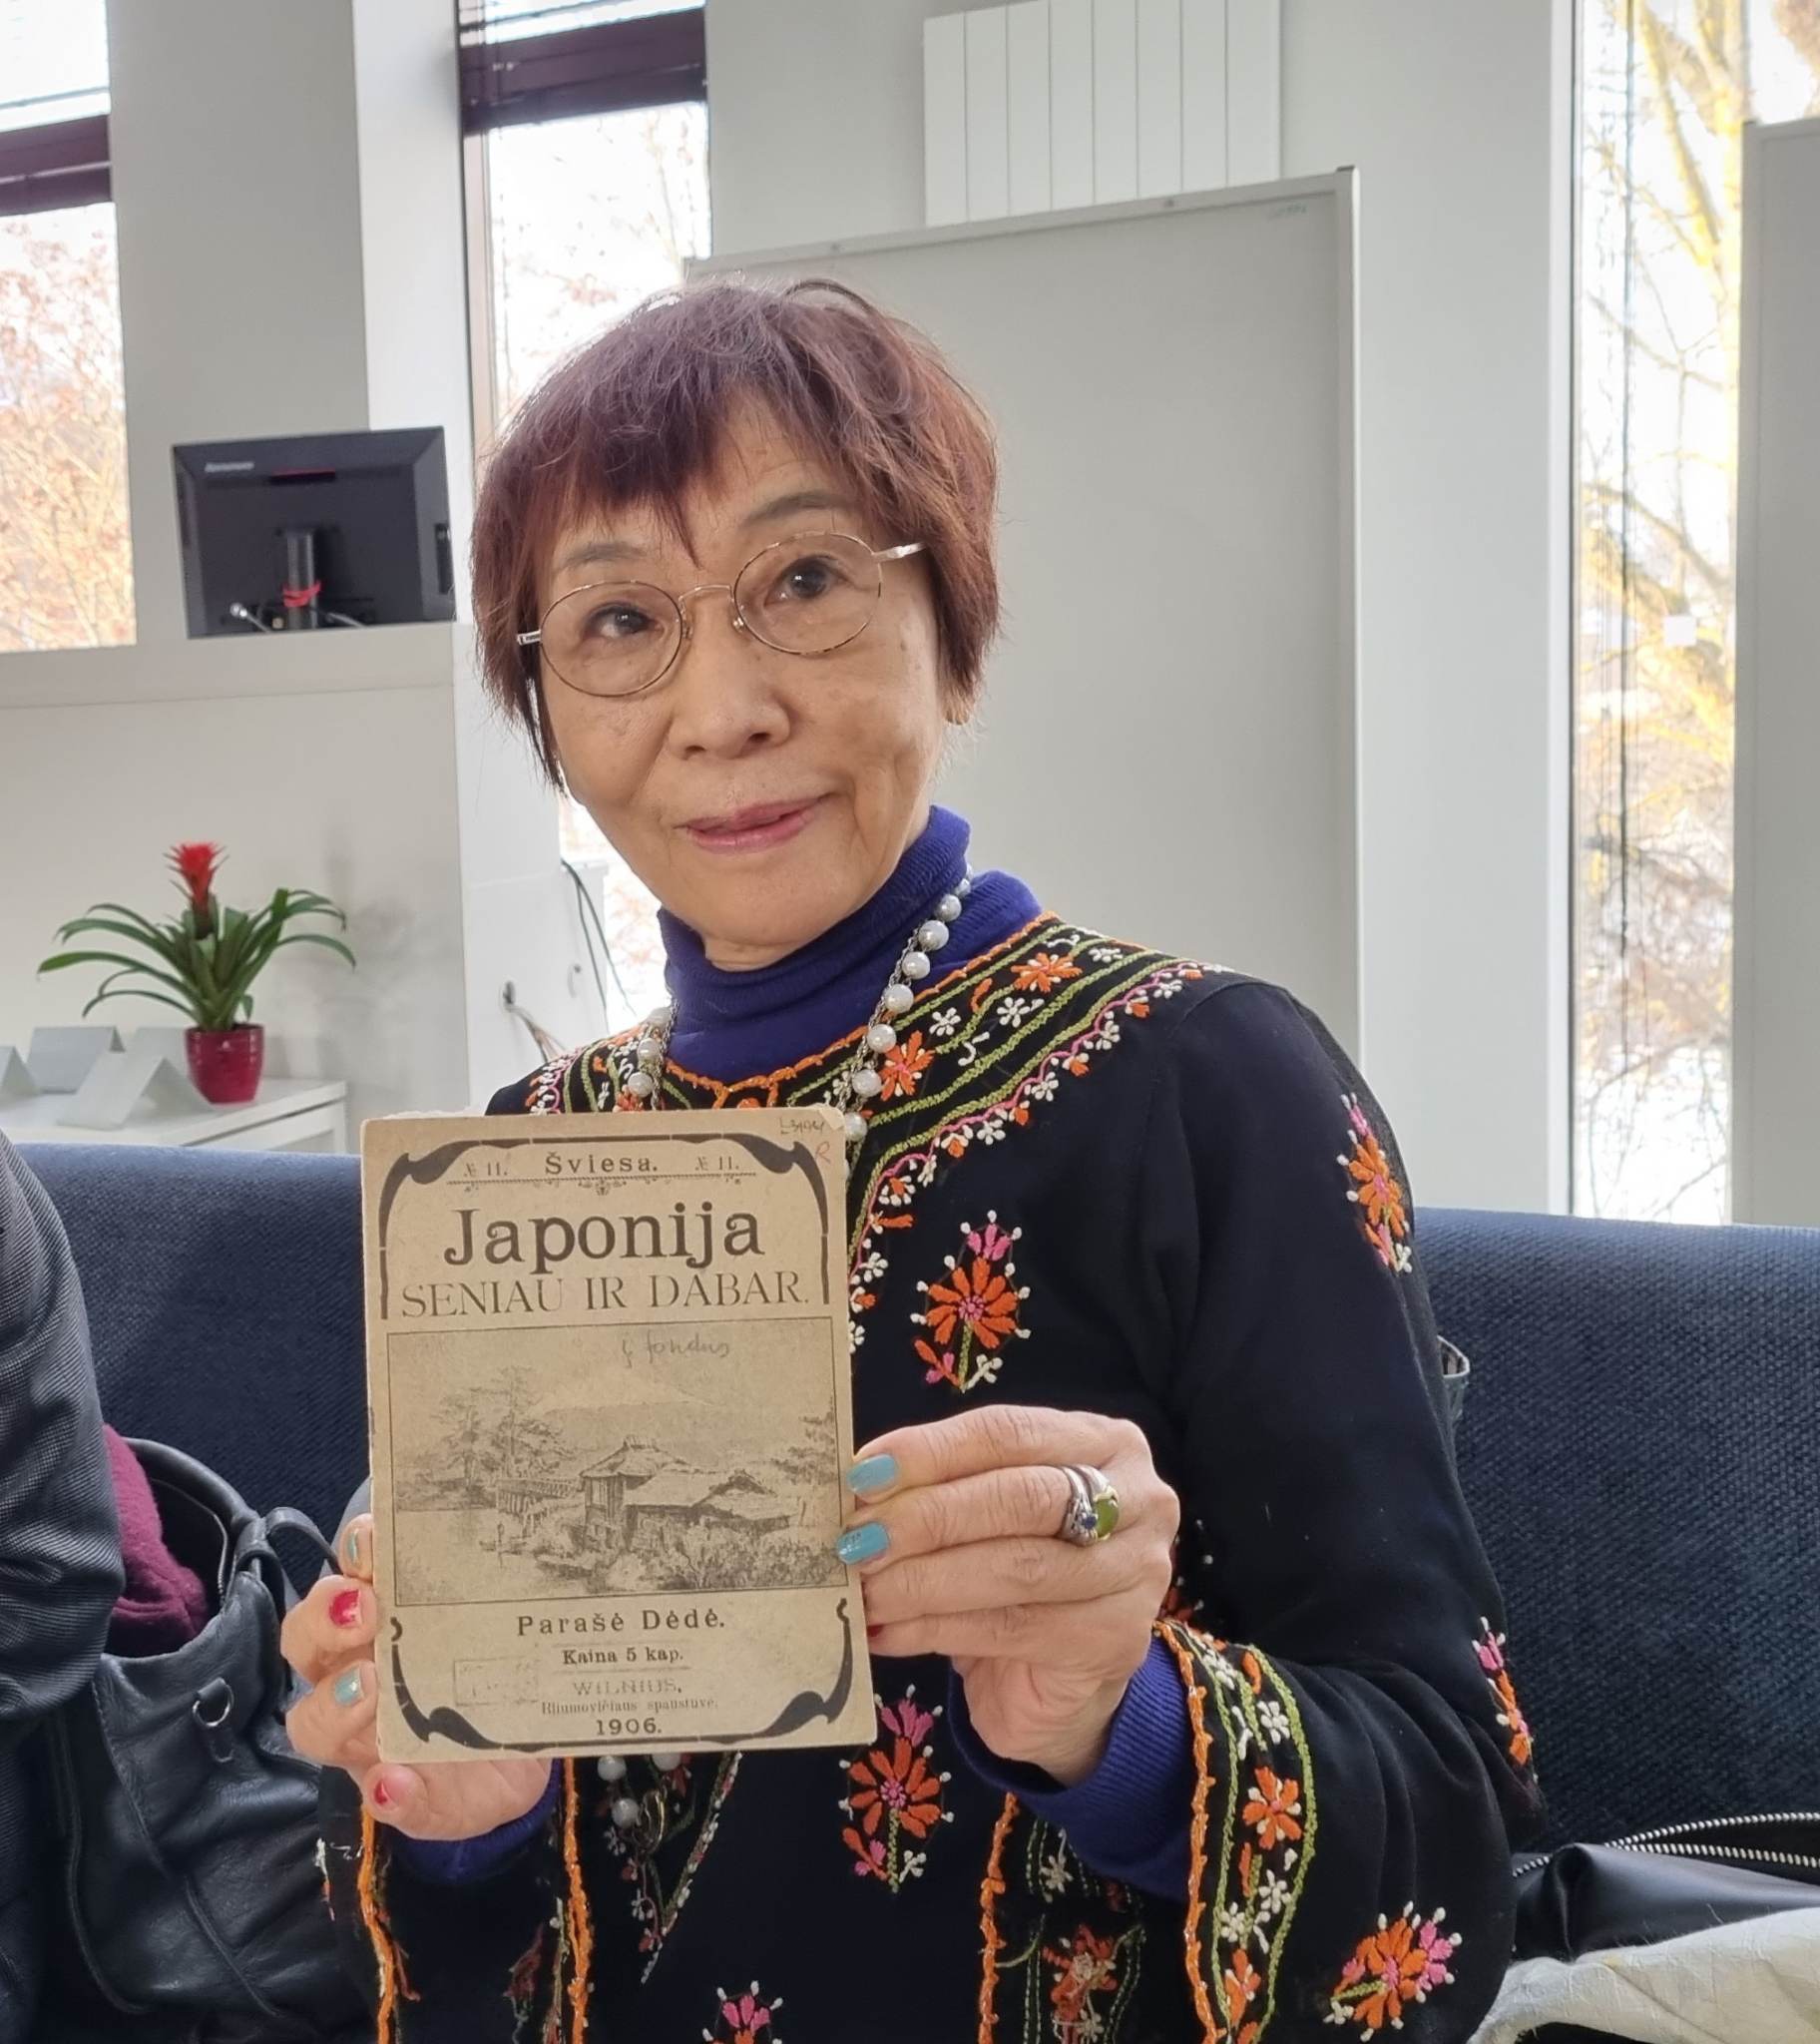 Lenovo
№ 11. Šviesa. № 11.
Japonija
SENIAU IR DABAR.
į fondus
Parašė Dėdė.
Kaina 5 kap.
WILNIUS,
spaustuvė.
1906.